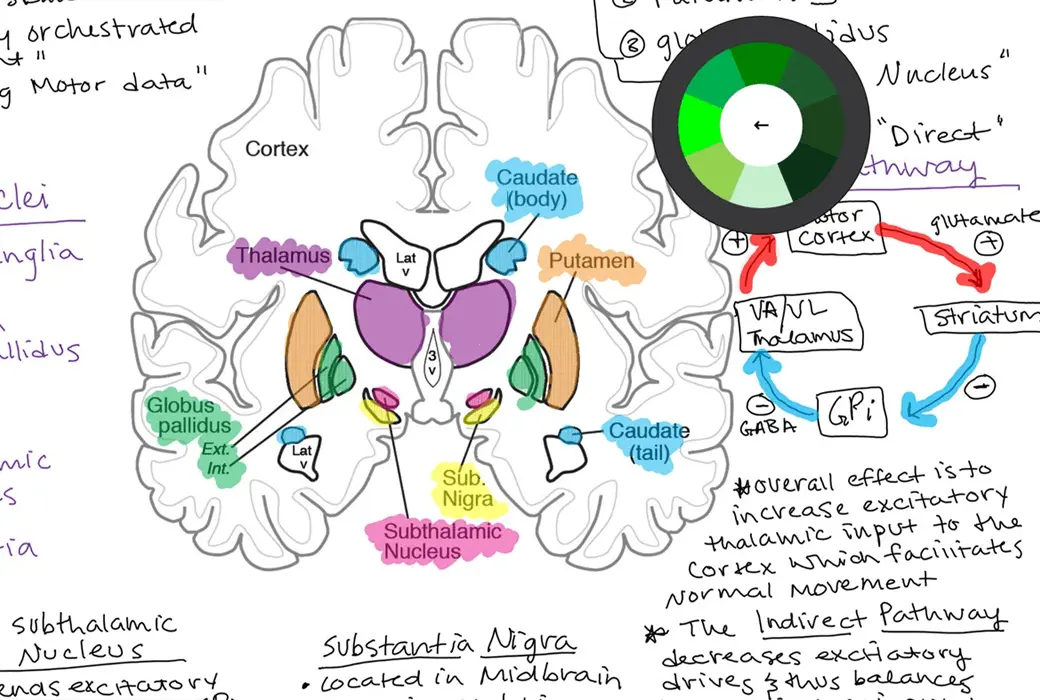 y orchestrated
g Motor data"
clei
anglia
allidus
amic
es
ria
Cortex
Caudate
(body)
Thalamus
Lat
v
Putamen
3
v
Globus
pallidus
Ext.
Int.
Lat
v
Caudate
(tail)
Sub.
Nigra
Subthalamic
Nucleus
③ glo idus
Nucleus"
"Direct"
thway
←
motor
cortex
+
glutamate
+
VA/VL
Thalamus
Striatum
−
GPi
−
GABA
*overall effect is to
increase excitatory
thalamic input to the
cortex which facilitates
normal movement
* The Indirect Pathway
decreases excitatory
drives & thus balances
subthalamic
Nucleus
ends excitatory
Substantia Nigra
• located in Midbrain